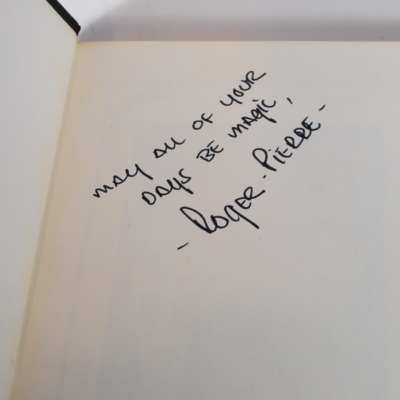 MAY ALL OF YOUR
DAYS BE MAGIC,
- ROGER-PIERRE-